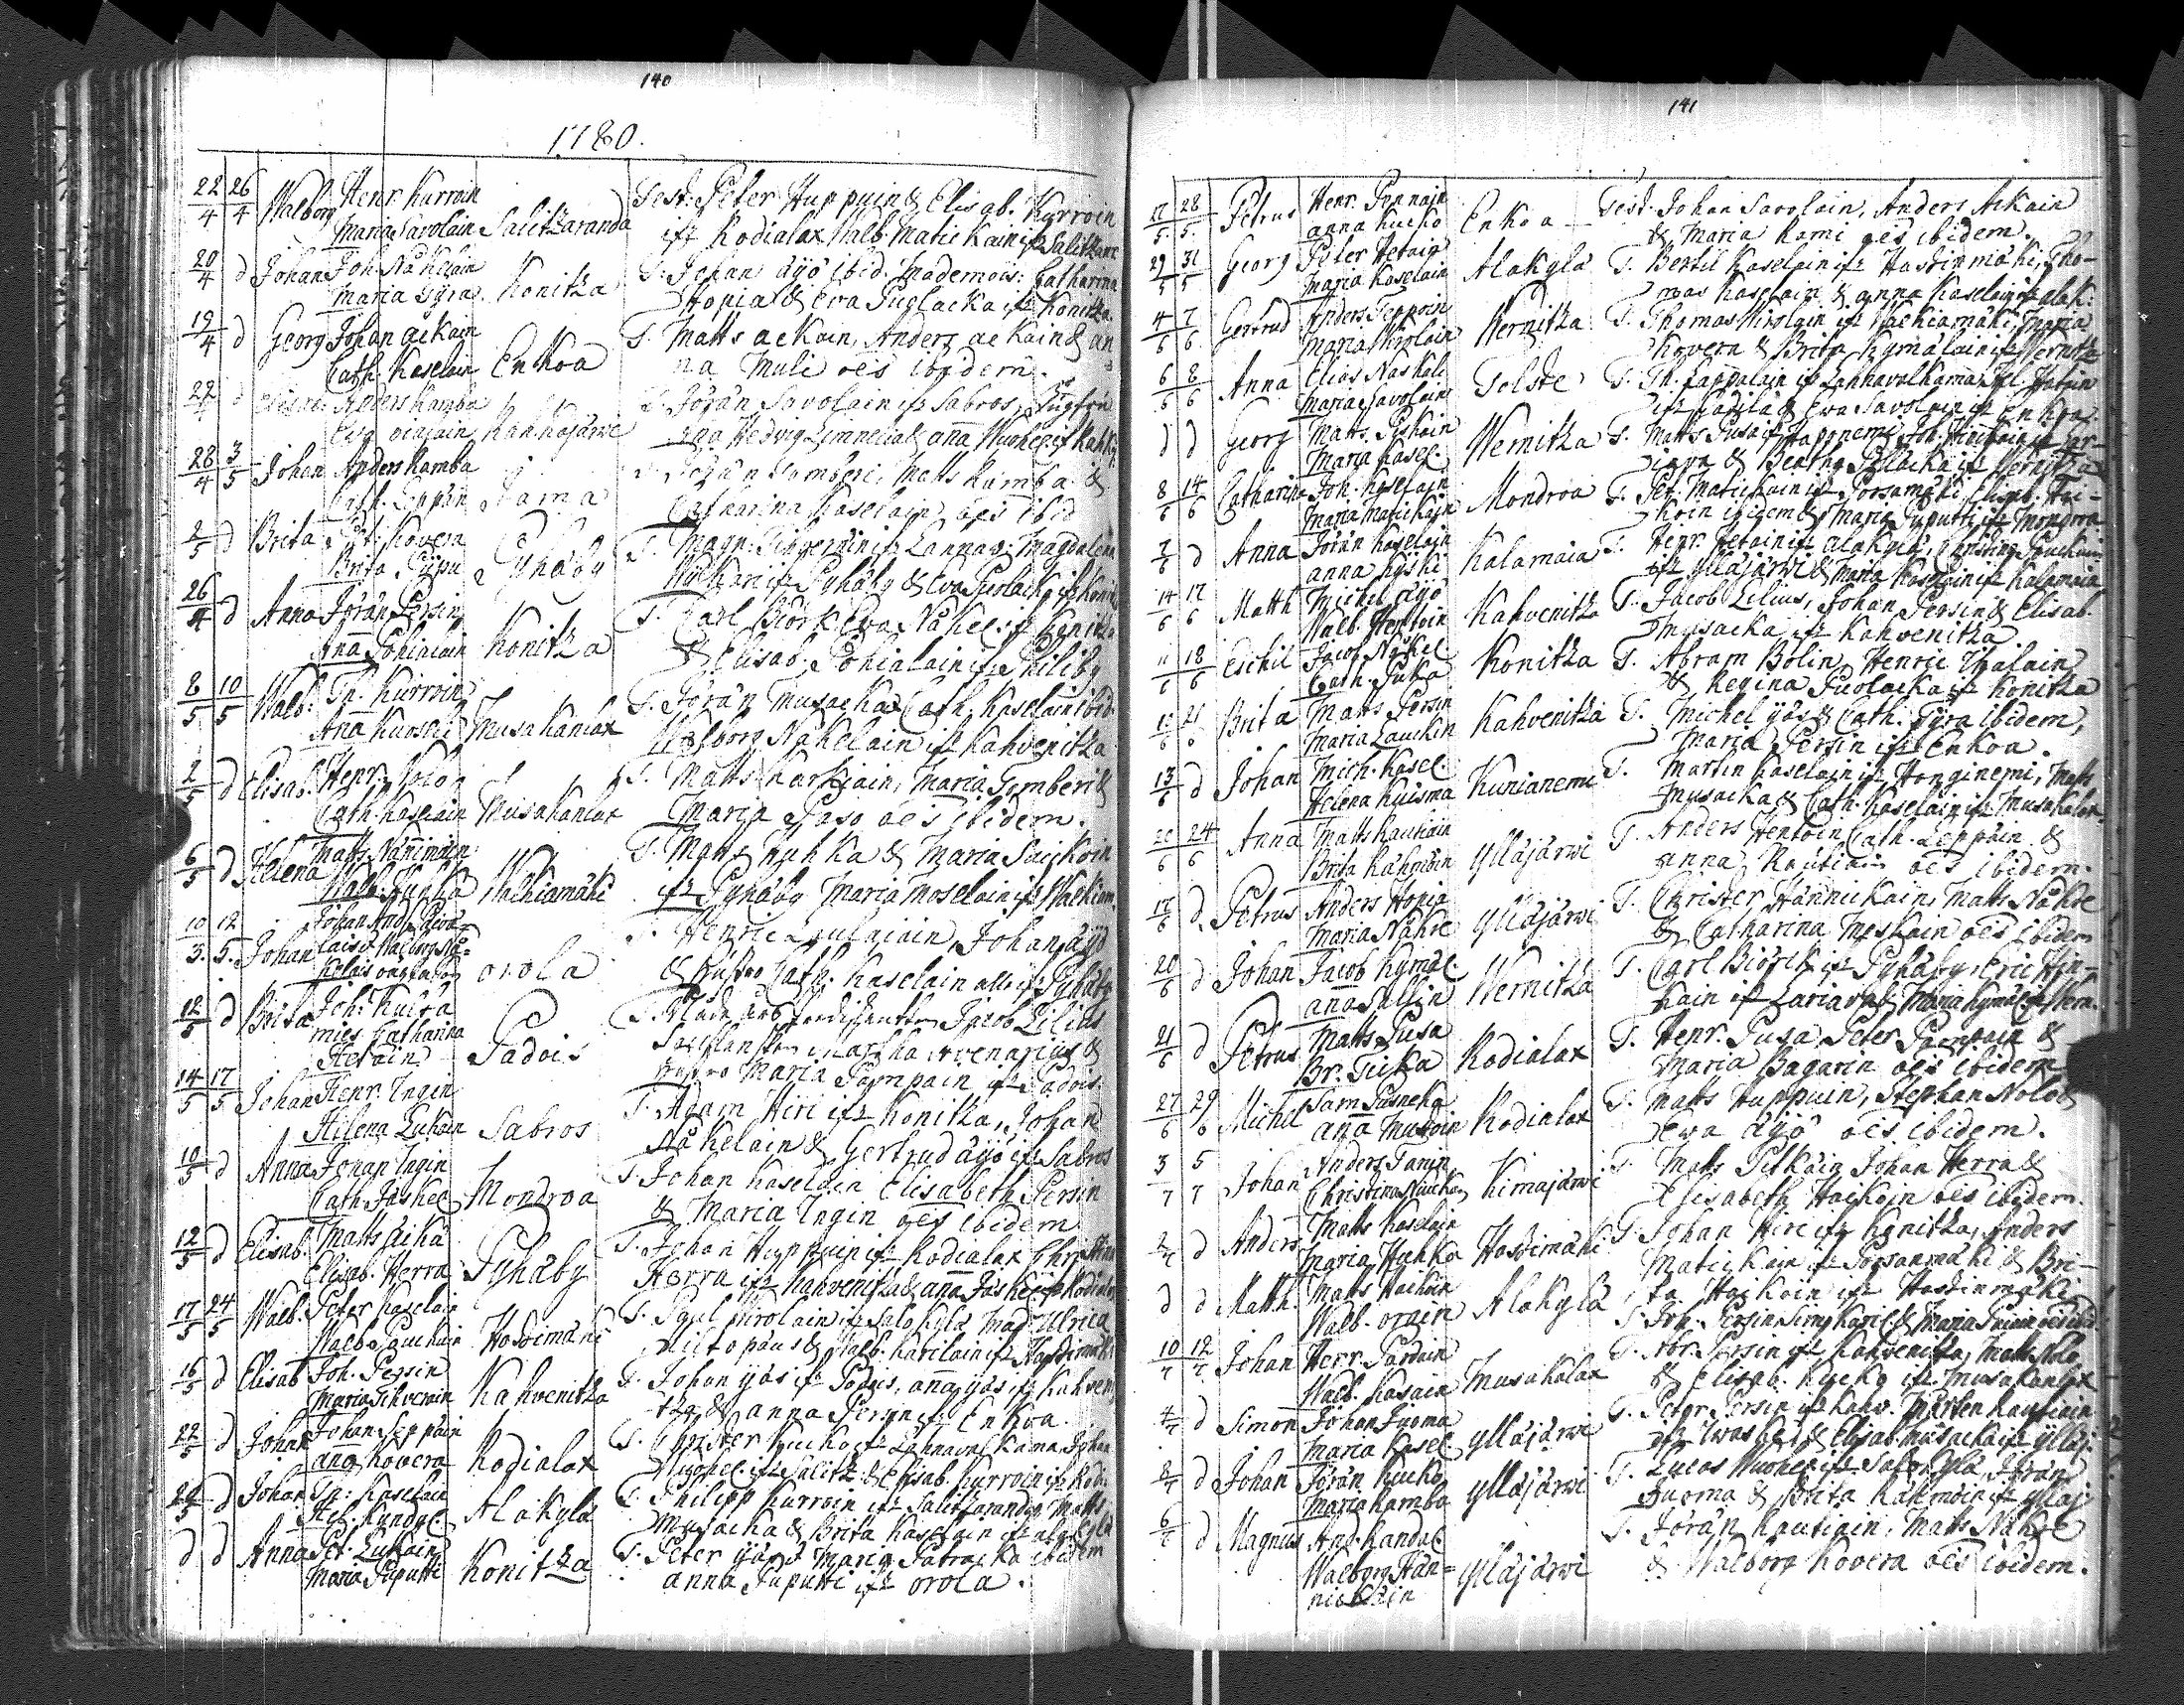 140
1780.
22/4 26/4 Walborg Henr. Kurroin Maria Savolain Salitzaranda Test. Peter Huppuin & Elisab. Kurroin
ifr Kodialax Walb. Matickain ifr Salitzarand
20/4 d Johan Joh. Nåkelain Maria Tyra Konitza T. Johan äyö ibid. Mademois: Catharina
Hopia & Ewa Puolacka ifr Konitza
19/4 d Georg Johan aickain Cath. Kaselain Enkoa T. Matts aeKain, Anders aeKain & an
na Muli oes ibidem.
22/4 d Elisab. Anders Kamba Kaukojärwi T. Jöran Savolain ifr Sabros, Jungfru
28/4 3/5 Johan Anders Kamba Cath. Leppän Jama T. Jöran Somberi, Matts Kamba &
Catharina Kaselain oes ibid
2/5 d Brita Pet. Kovera Brita Pypu Pyhäby T. Magn: Silfverin ifr Lanna & Magdalena
26/4 d Anna Jöran Persin Ana Pohialain Konitza T. Carl Biörk Ewa Nåkel. ifr Konitza
& Elisab. Pohialain ifr Philiby
8/5 10/5 Walb: Th. Kurroin Ana Kuoski Musakanlax T. Jöran Musacka & Cath. Kaselain ibid
Walborg Nåkelain ifr Kahvenitza
2/5 d Elisab. Henr. Nolo Cath. Kaselain Musakanlax T. Matts Karhiain, Maria Somberi &
Maria Paso oes ibidem.
6/5 d Helena Matts Nänimäin Walb. Huhka Walkiamäki T. Matts Huhka & Maria Saijkoin
ifr Pyhäby Maria Moselain ifr Walkiam.
10/5 12/5 Johan orola T. Henric Loulaiain, Johan äyö
& hustro Cath. Kaselain alla ifr Pyhäby
12/5 d Brita Joh: Kulva mies Catharina Hetäin Padois Jacob Lilius
Martha Avenarius &
hustro Maria Pampain ifr Padois
14/5 17/5 Johan Henr. Ingin Helena Lukain Sabros T. Adam Hiri ifr Konitza, Johan
Nåkelain & Gertrud äyö ifr Sabros
10/5 d Anna Johan Ingin Cath. Jäskel. Mondroa T. Johan Kaselain Elisabeth Persin
& Maria Ingin oes ibidem
12/5 d Elisab. Matts Saika Elisab. Herra Pyhäby T. Johan Huppuin ifr Kodialax Christina
Herra ifr Kahvenitza & ana Jäskel. ifr Kodialax
17/5 24/5 Walb. Peter Kaselain Walb. Paukain Hostimäki T. Paul Wirolain ifr Salokylä Mad: Ulrica
Litopäus & Walb. Karilain ifr Hostimäki
16/5 d Elisab Joh. Persin Maria Silverain Kahvenitza T. Johan yäs ifr Podus, ana yäs ifr Kahveni
tza & anna Persin ifr Enkoa.
22/5 d Johan Johan Seppäin ana Kovera Kodialax T. Christer Kucko ifr Lahnavalkama Johan
Wuohel. ifr Salitz. & Elisab. Kurroin ifr Kodi.
22/5 d Johan Th: Kaselain Hel. Kyndel Alakylä T. Philipp Kurroin ifr Salitzaranda Matts
Musacka & Brita Kaselain ifr alakylä
d d Anna Pet. Lukain Maria Puputti Konitza T. Peter yäs & Maria Patracka ibidem
anna Puputti ifr orola.
141
27/5 28/5 Petrus Henr. Pennain anna Kucko Enkoa Test. Johan Savolain, Anders Askain
& Maria Kami oes ibidem.
29/5 31/5 Georg Peter Hetain Maria Kaselain Alakylä T. Bertil Kaselain ifr Hostinmäki, Tho-
mas Kaselain & anna Kaselain ifr alak:
4/6 7/6 Gertrud Anders Seppoin Maria Wirolain Wernitza T. Thomas Wirolain ifr Walkiamäki, Maria
Kovera & Brita Kymäläin ifr Wernitz
6/6 8/6 Anna Elias Naskali Maria Savolain Solste T. Th. Lappalain ifr Lahnavalkama, Hel. Hatain
& Ewa Savolain ifr Enkoa
d d Georg Matts Piskain Maria Kasel. Wernitza T. Matts Pusa ifr
& Beatha Polacka ifr Wernitza
8/6 14/6 Catharina Joh. Kaselain Maria Matickain Mondroa T. Pet. Matickain ifr Porsamäki Elisab. Hai-
koin ibidem & Maria Puputti ifr Mondroa
7/6 d Anna Jöran Kaselain anna Kyski Kalamaia T. Henr. Hetain ifr Alakylä, Christina Paukain
ifr Ylläjärwi & Maria Kaselain ifr Kalamaia
14/6 17/6 Matth Michel äyö Walb. Henttoin Kahvenitza T. Jacob Lilius, Johan Persin & Elisab.
Musacka ifr Kahvenitza
11/6 18/6 Eschil Jacob Nåkel. Cath. Puka Konitza T. Abram Bolin, Henric Ihalain
& Regina Puolacka ifr Konitza
12/6 21/6 Brita Matts Persin Maria Lauckin Kahvenitza T. Michel yäs & Cath: Tyra ibidem,
Maria Persin ifr Enkoa.
13/6 d Johan Mich. Kasel. Helena Kuisma Kunianemi T. Martin Kaselain ifr Honginemi, Matts
Musacka & Cath. Kaselain ifr Musakalax.
20/6 24/6 Anna Matts Rautiain Brita Kähmöin Ylläjärwi T. Anders Hentoin Cath. Leppäin &
anna Rautiain oes ibidem.
17/6 d. Petrus Anders Hopia Maria Nåkre Ylläjärwi T. Christer Hännickain, Matts Nåkre
& Catharina Meskain oes ibidem
20/6 d Johan Jacob Kymäl. ana Sallin Wernitza T. Carl Biörck ifr Pyhäby, Eric Hin-
kain ifr Lariava & Maria Kymäl. ifr Wern.
21/6 d Petrus Matts Pusa Br. Ticka Kodialax T. Henr. Pusa Peter Pampain &
Maria Bagarin oes ibidem
27/6 29/6 Michel Sam Pasneka ana Mustoin Kodialax T. Matts Huppuin, Stephan Nolo &
ewa äyö oes ibidem.
3/7 5/7 Johan Anders Tanin Christina Kimajärwi T. Matts Pitkäin Johan Herra &
Elisabeth Haikoin oes ibidem.
2/7 d Anders Matts Kaselain Maria Huhka Hostimäki T. Johan Hiri ifr Konitza, Anders
Matickain ifr Porsanmäki & Bri-
ta Haikoin ifr Hostinmäki
d d Matth. Matts Haikoin Walb. orain Alakylä T. Joh. Persin
10/7 12/7 Johan Henr. Pärdain Walb. Kasain Musakalax T. Abr. Persin ifr Kahvenitza, Matts Nolo
& Elisab. Kucko ifr Musakanlax
4/7 d Simon Johan Juoma Maria Kasel. Ylläjärwi T. Peter Persin ifr Kahv. Mårten Rautiain
& Elisab. Musacka ifr Ylläj.
8/7 d Johan Jöran Kucko Maria Kamba Ylläjärwi T. Lucas Wuohel. ifr Salokylä, Jöran
Juoma & Brita Kähmöin ifr Ylläj
6/7 d Magnus And. Kandel. Walborg Hän-
nickäin Ylläjärwi T. Jöran Rautiain, Matts Nåkre
& Walborg Kovera oes ibidem.